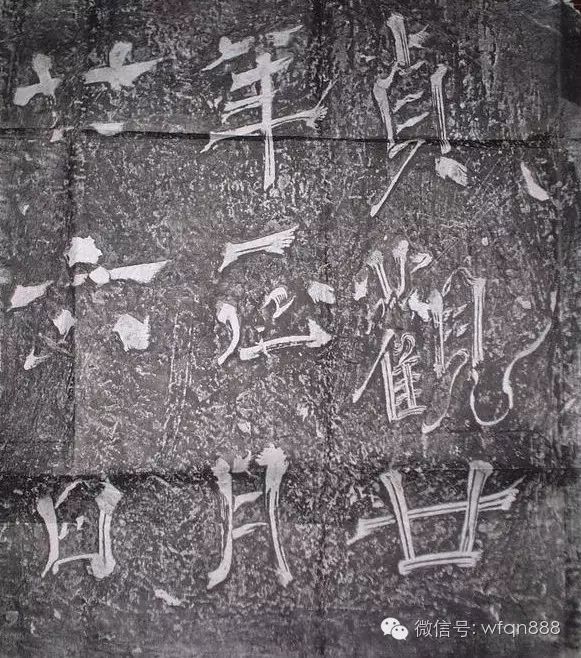 貞觀廿
年正月
廿六日
微信号: wfqn888